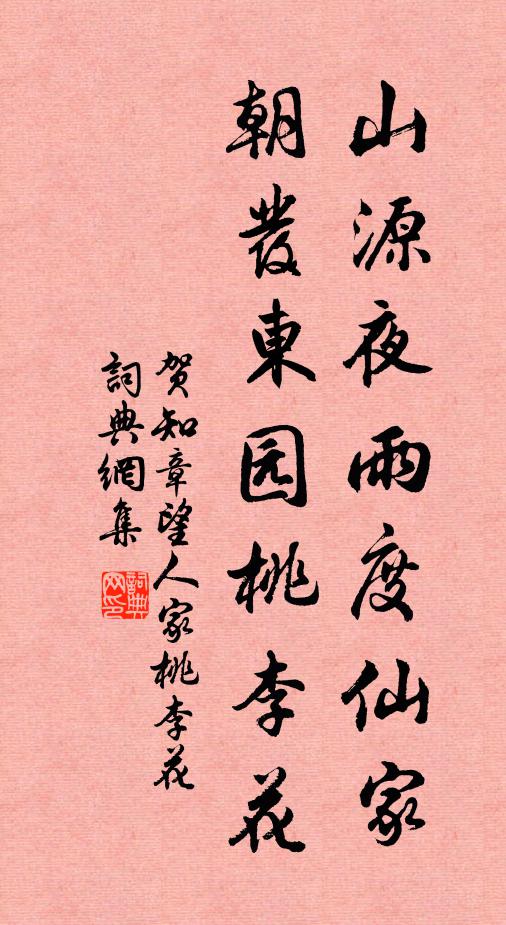 山源夜雨度仙家
朝發東园桃李花
賀知章望人家桃李花
詞典網集
詞典网印